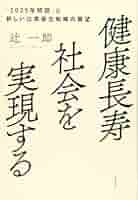 「2025年問題」と
新しい公衆衛生戦略の展望
辻 一郎
健康長寿
社会を
実現する